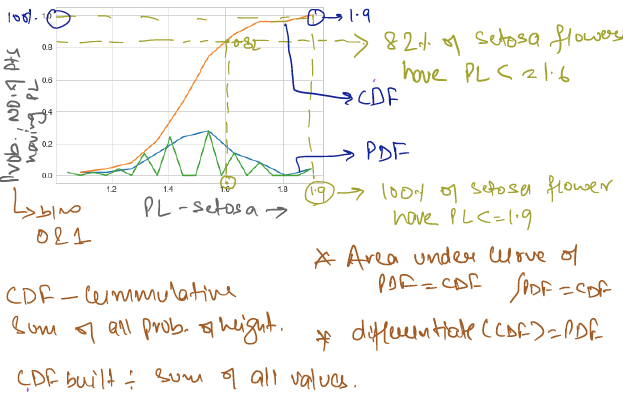 100%
1.0
→ 1.9
0.8
0.82
→ 82% of setosa flowers
have PL <= 1.6
→ CDF
0.4
0.2
→ PDF
0.0
1.2 1.4 1.6 1.8
Prob., NO. of pts
having PL
1.9 → 100% of setosa flower
have PL <= 1.9
PL - setosa →
b/w
0 & 1
* Area under curve of
PDF = CDF ∫PDF = CDF
CDF - Cummulative
Sum of all prob. of height.
* differentiate (CDF) = PDF
CDF built ÷ sum of all values.